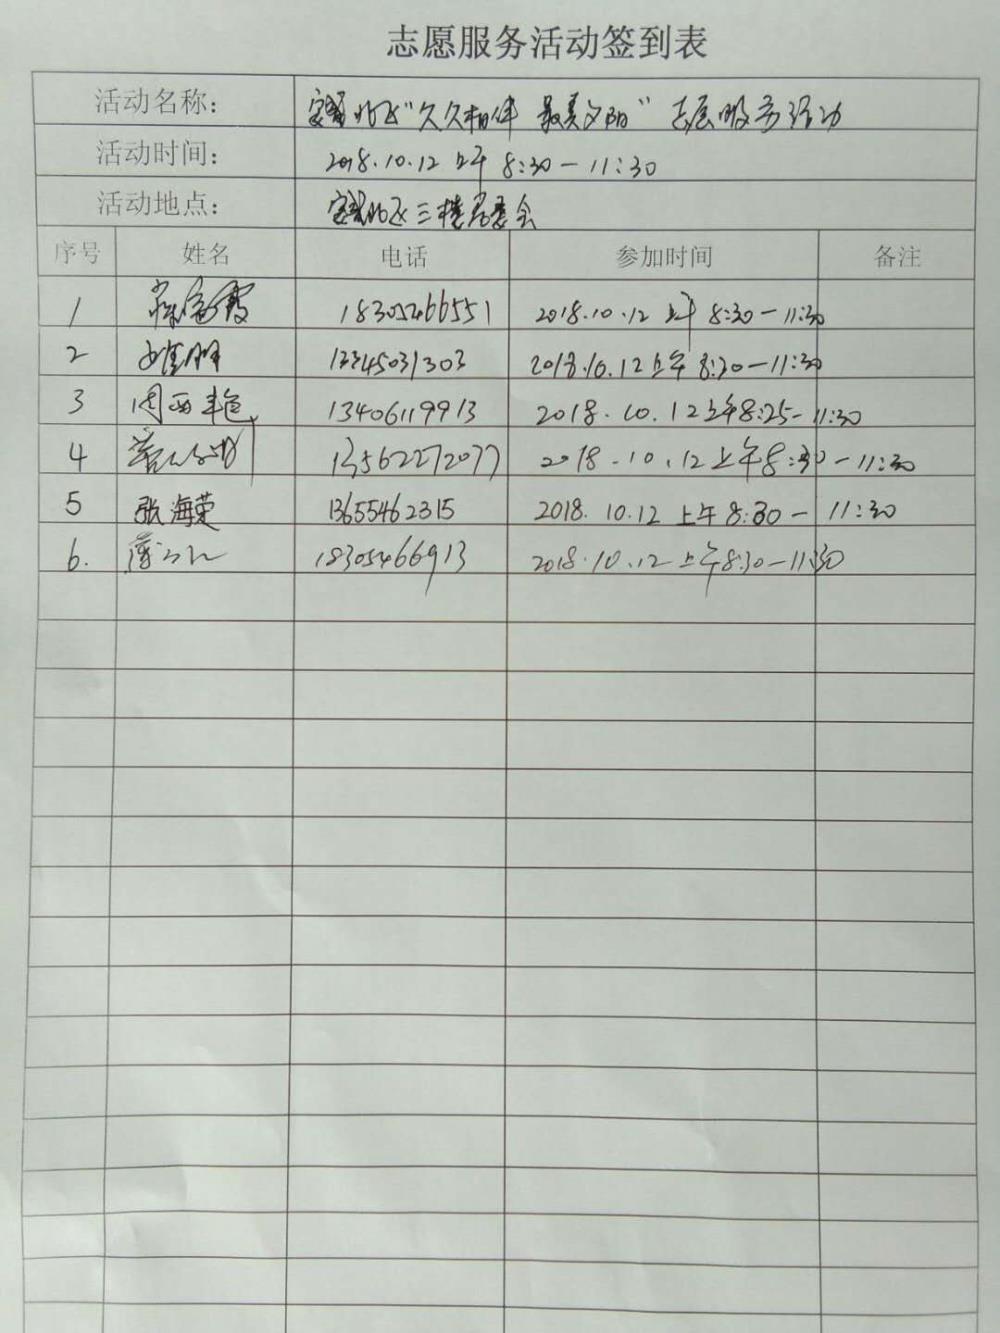 志愿服务活动签到表
活动名称: "久久相伴 最美夕阳" 志愿服务活动
活动时间: 2018.10.12 上午 8:30-11:30
活动地点: 三楼居委会
序号 姓名 电话 参加时间 备注
1 18305466551 2018.10.12 上午 8:30-11:30
2 13345031303 2018.10.12 上午 8:30-11:30
3 周西艳 13406119913 2018.10.12 上午 8:25-11:30
4 13562272077 2018.10.12 上午 8:30-11:30
5 张海荣 13655462315 2018.10.12 上午 8:30-11:30
6. 18305466913 2018.10.12 上午 8:30-11:30